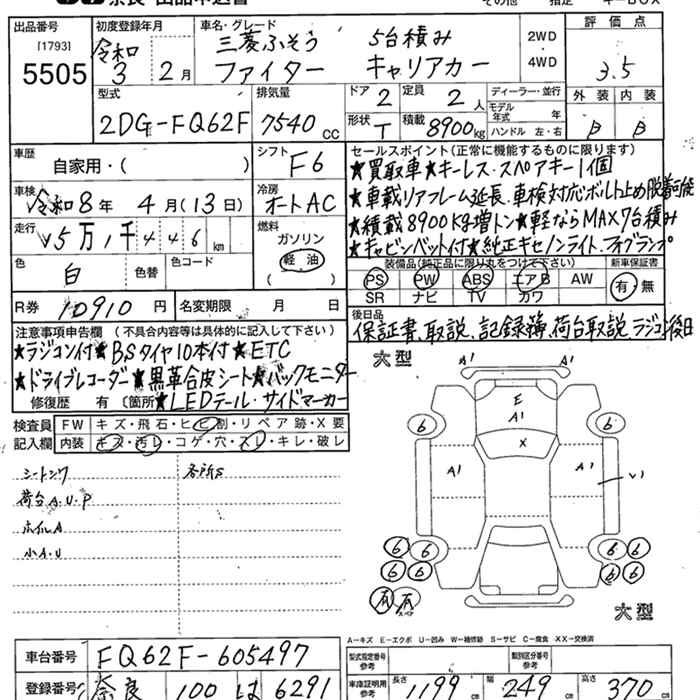 奈良 出品申込書
その他 指定 キーBOX
出品番号
[1793]
5505
初度登録年月
令和
3 2月
車名・グレード
三菱ふそう 5台積み
ファイター キャリアカー
2WD
4WD
評価点
3.5
型式
2DG-FQ62F
排気量
7540 CC
ドア 2
定員 2人
形状 T
積載 8900 kg
ディーラー・並行
モデル年式 年
ハンドル 左・右
外装 内装
B B
車歴
自家用・( )
シフト
F6
車検
令和8年 4月(13日)
冷房
オートAC
走行
5万1千446km
燃料
ガソリン
軽油
( )
色
白
色替
色コード
R券 10910 円
名変期限 月 日
セールスポイント(正常に機能するものに限ります)
★買取車★キーレス・スペアキー1個
★車載リアフレーム延長、車検対応ボルト止め脱着可能
★積載8900Kg増トン★軽ならMAX7台積み
★キャビンベット付★純正キセノンライト、フォグランプ
装備品(純正品に限り丸をつけて下さい)
PS PW ABS エアB AW
SR ナビ TV カワ
新車保証書
有・無
後日品
保証書、取説、記録簿、荷台取説、ラジコン後日
注意事項申告欄(不具合内容等は具体的に記入して下さい)
★ラジコン付★BSタイヤ10本付★ETC
★ドライブレコーダー★黒革合皮シート★バックモニター
修復歴 有〔箇所★LEDテール・サイドマーカー
検査員
記入欄
FW キズ・飛石・ヒビ割・リペア跡・X要
内装 キズ・汚レ・コゲ・穴・スレ・キレ・破レ
シートシワ
荷台A.U.P
ホイルA
小A.U
各所S
大型
A1 A1
E
A1
X
A1 A1
6 6
6 6 6 6
6 6 6 6
有 スペ
大型
A-キズ E-エクボ U-凹み W-補修跡 S-サビ C-腐食 XX-交換済
車台番号 FQ62F-605497
登録番号 奈良 100 は 6291
型式指定番号
参考
類別区分番号
参考
車庫証明用
参考
長さ 1199 cm
幅 249 cm
高さ 370 cm